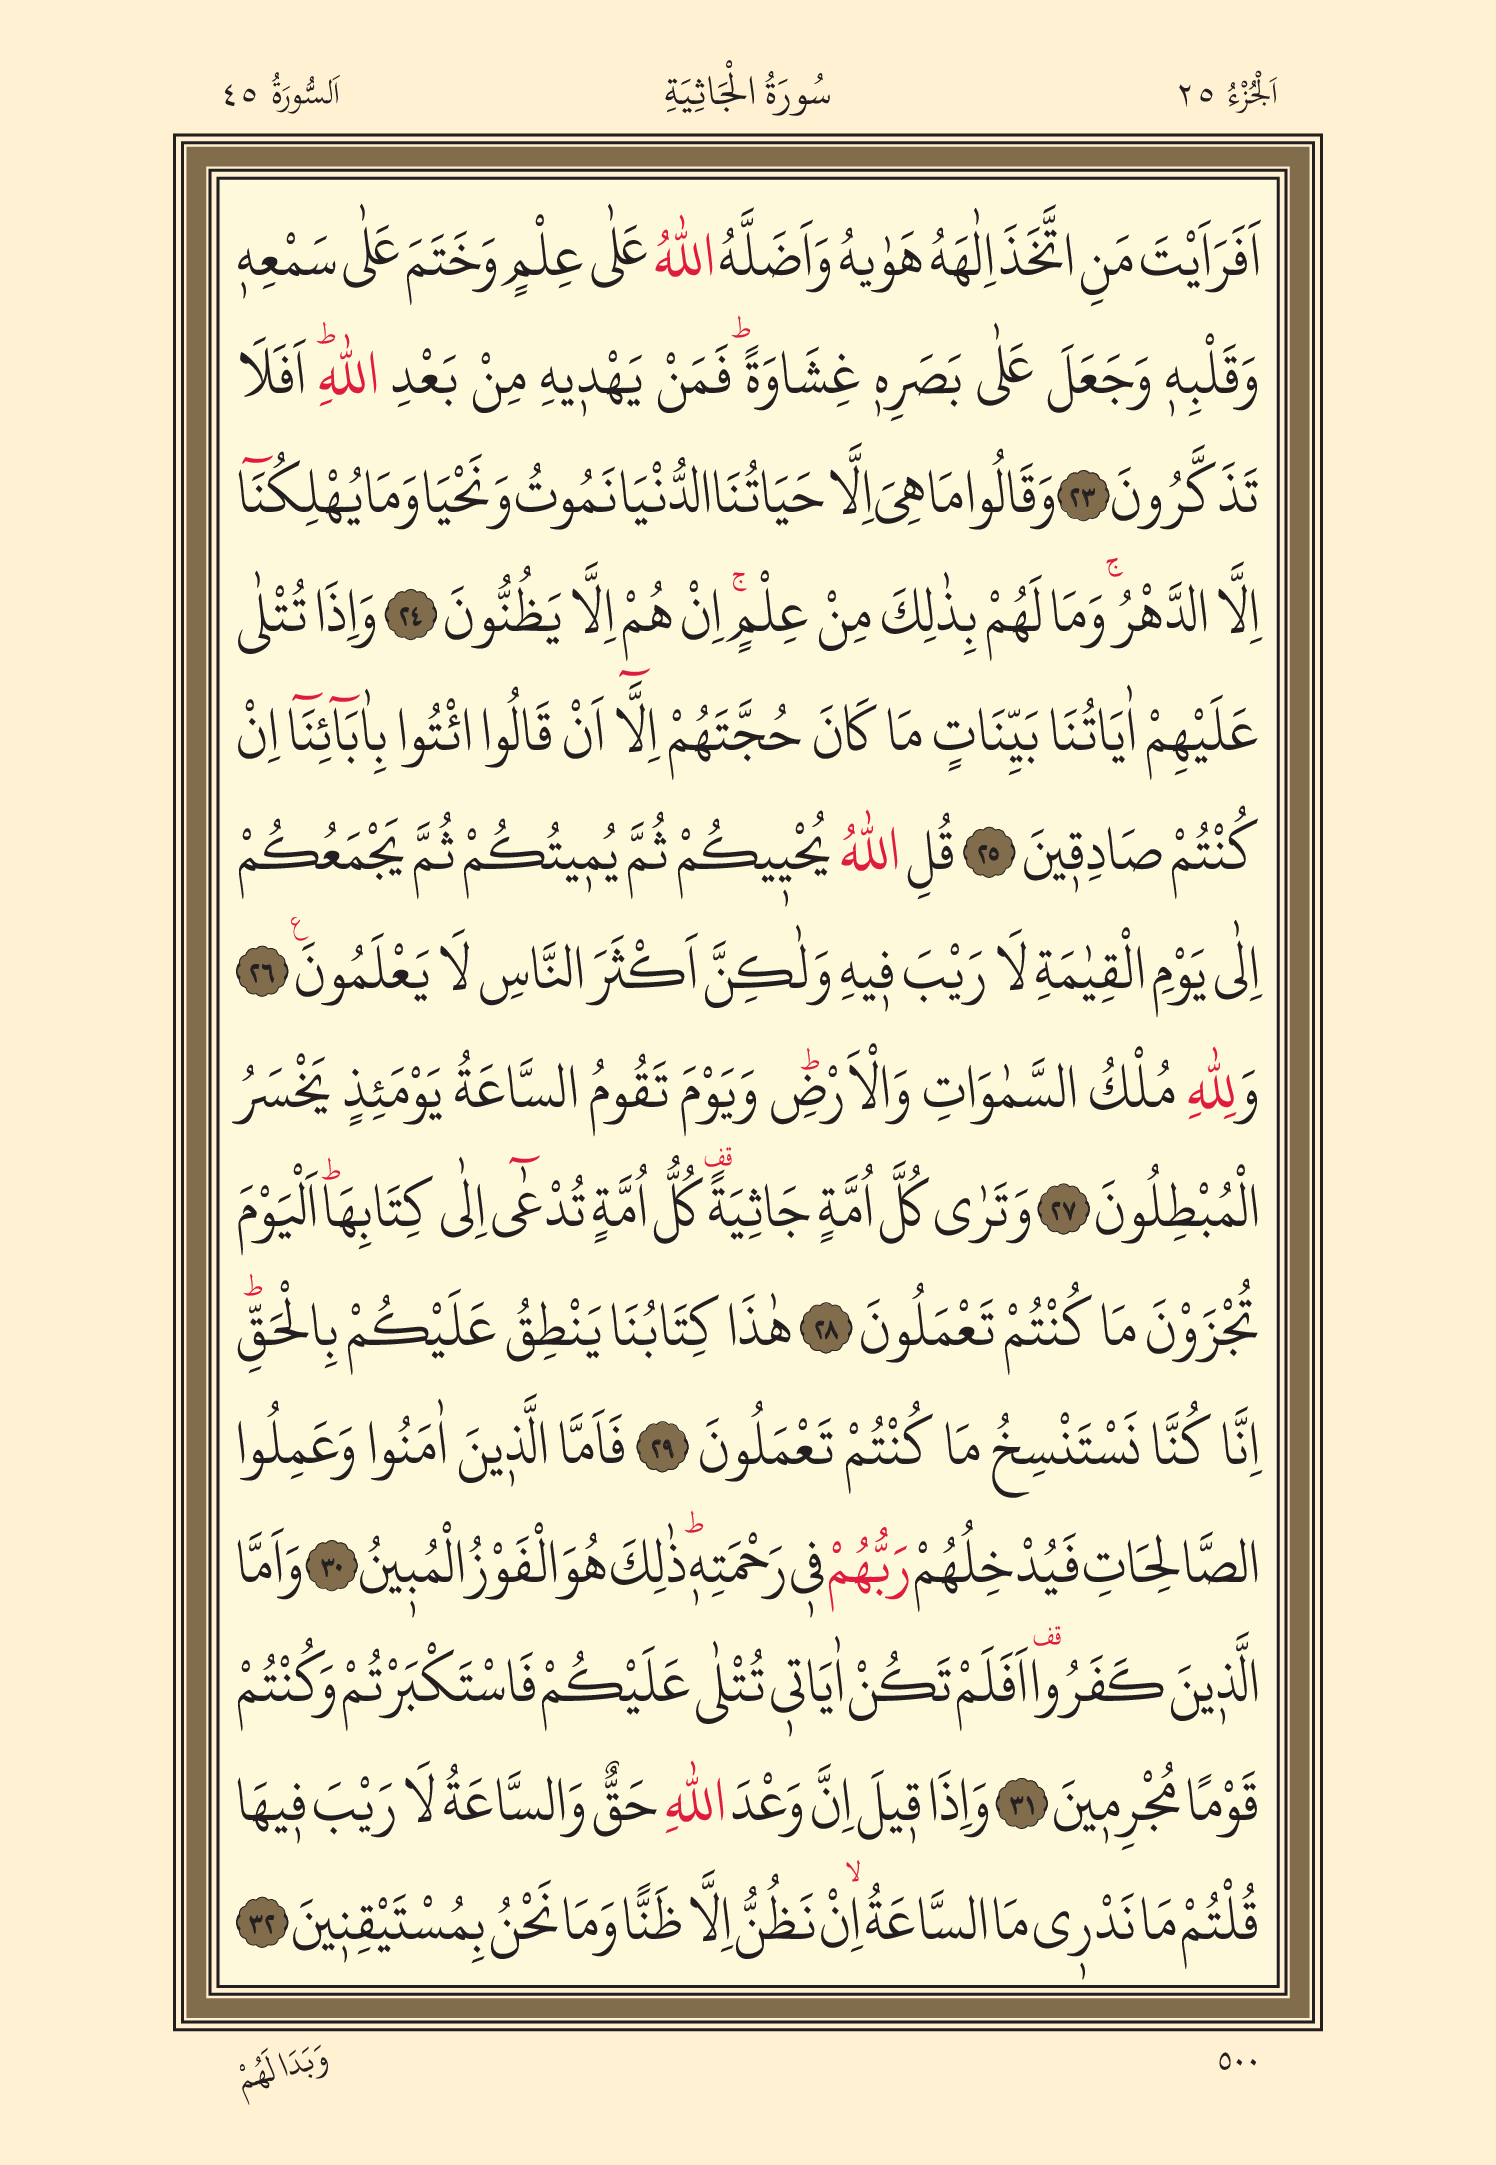 اَلْجُزْءُ ٢٥
سُورَةُ الْجَاثِيَةِ
اَلسُّورَةُ ٤٥
اَفَرَاَيْتَ مَنِ اتَّخَذَ اِلٰهَهُ هَوٰيهُ وَاَضَلَّهُ اللّٰهُ عَلٰى عِلْمٍ وَخَتَمَ عَلٰى سَمْعِهٖ
وَقَلْبِهٖ وَجَعَلَ عَلٰى بَصَرِهٖ غِشَاوَةًؕ فَمَنْ يَهْدٖيهِ مِنْ بَعْدِ اللّٰهِؕ اَفَلَا
تَذَكَّرُونَ ٢٣ وَقَالُوا مَا هِىَ اِلَّا حَيَاتُنَا الدُّنْيَا نَمُوتُ وَنَحْيَا وَمَا يُهْلِكُنَٓا
اِلَّا الدَّهْرُۚ وَمَا لَهُمْ بِذٰلِكَ مِنْ عِلْمٍۚ اِنْ هُمْ اِلَّا يَظُنُّونَ ٢٤ وَاِذَا تُتْلٰى
عَلَيْهِمْ اٰيَاتُنَا بَيِّنَاتٍ مَا كَانَ حُجَّتَهُمْ اِلَّٓا اَنْ قَالُوا ائْتُوا بِاٰبَٓائِنَٓا اِنْ
كُنْتُمْ صَادِقٖينَ ٢٥ قُلِ اللّٰهُ يُحْيٖيكُمْ ثُمَّ يُمٖيتُكُمْ ثُمَّ يَجْمَعُكُمْ
اِلٰى يَوْمِ الْقِيٰمَةِ لَا رَيْبَ فٖيهِ وَلٰكِنَّ اَكْثَرَ النَّاسِ لَا يَعْلَمُونَ ع ٢٦
وَلِلّٰهِ مُلْكُ السَّمٰوَاتِ وَالْاَرْضِؕ وَيَوْمَ تَقُومُ السَّاعَةُ يَوْمَئِذٍ يَخْسَرُ
الْمُبْطِلُونَ ٢٧ وَتَرٰى كُلَّ اُمَّةٍ جَاثِيَةً قف كُلُّ اُمَّةٍ تُدْعٰٓى اِلٰى كِتَابِهَاؕ اَلْيَوْمَ
تُجْزَوْنَ مَا كُنْتُمْ تَعْمَلُونَ ٢٨ هٰذَا كِتَابُنَا يَنْطِقُ عَلَيْكُمْ بِالْحَقِّؕ
اِنَّا كُنَّا نَسْتَنْسِخُ مَا كُنْتُمْ تَعْمَلُونَ ٢٩ فَاَمَّا الَّذٖينَ اٰمَنُوا وَعَمِلُوا
الصَّالِحَاتِ فَيُدْخِلُهُمْ رَبُّهُمْ فٖى رَحْمَتِهٖؕ ذٰلِكَ هُوَ الْفَوْزُ الْمُبٖينُ ٣٠ وَاَمَّا
الَّذٖينَ كَفَرُوا قف اَفَلَمْ تَكُنْ اٰيَاتٖى تُتْلٰى عَلَيْكُمْ فَاسْتَكْبَرْتُمْ وَكُنْتُمْ
قَوْمًا مُجْرِمٖينَ ٣١ وَاِذَا قٖيلَ اِنَّ وَعْدَ اللّٰهِ حَقٌّ وَالسَّاعَةُ لَا رَيْبَ فٖيهَا
قُلْتُمْ مَا نَدْرٖى مَا السَّاعَةُۙ اِنْ نَظُنُّ اِلَّا ظَنًّا وَمَا نَحْنُ بِمُسْتَيْقِنٖينَ ٣٢
٥٠٠
وَبَدَا لَهُمْ